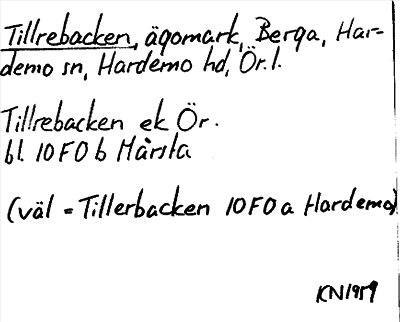 Tillrebacken, ägomark, Berga, Har-
demo sn, Hardemo hd, Ör. l.
Tillrebacken ek Ör.
bl. 10 F 0 b Mårsta
(väl = Tillerbacken 10 F 0 a Hardemo)
KN 1959